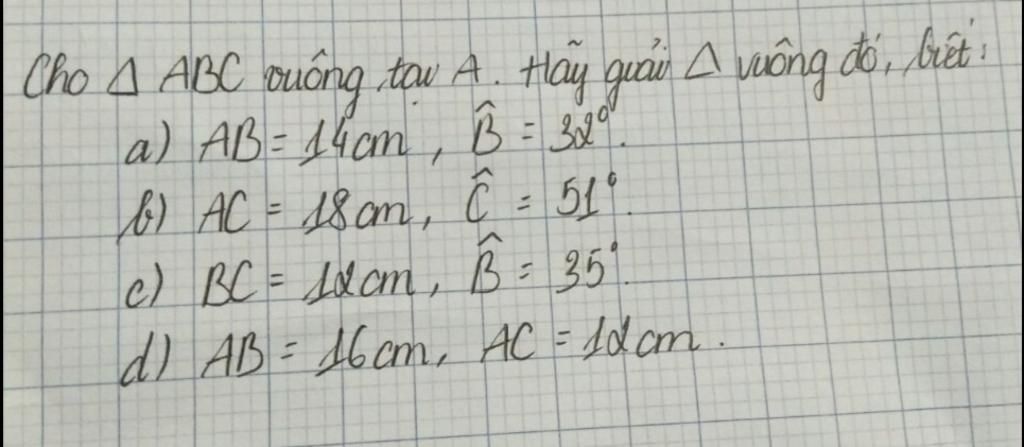 Cho Δ ABC vuông tại A. Hãy giải Δ vuông đó, biết:
a) AB = 14cm, B̂ = 32°.
b) AC = 18cm, Ĉ = 51°.
c) BC = 12cm, B̂ = 35°.
d) AB = 16cm, AC = 12cm.